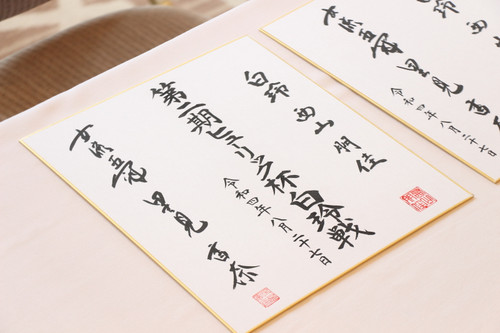 白玲 西山朋佳
第二期ヒューリック杯白玲戦
令和四年八月二十七日
女流五冠 里見香奈
白玲 西山
令和四年八月二十七日
女流五冠 里見香奈